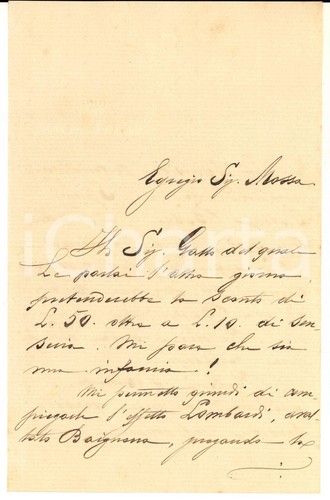 Egregio Sig. Mossa
Il Sig. Gallo del quale
Le parlai l'altro giorno
pretenderebbe lo sconto di
L. 50. oltre a L. 10. di sen-
seria. Mi pare che sia
una infamia!
Mi permetto quindi di am-
piegarle l'effetto Lombardi, aval-
lato Baignera, pregando la
iCharta